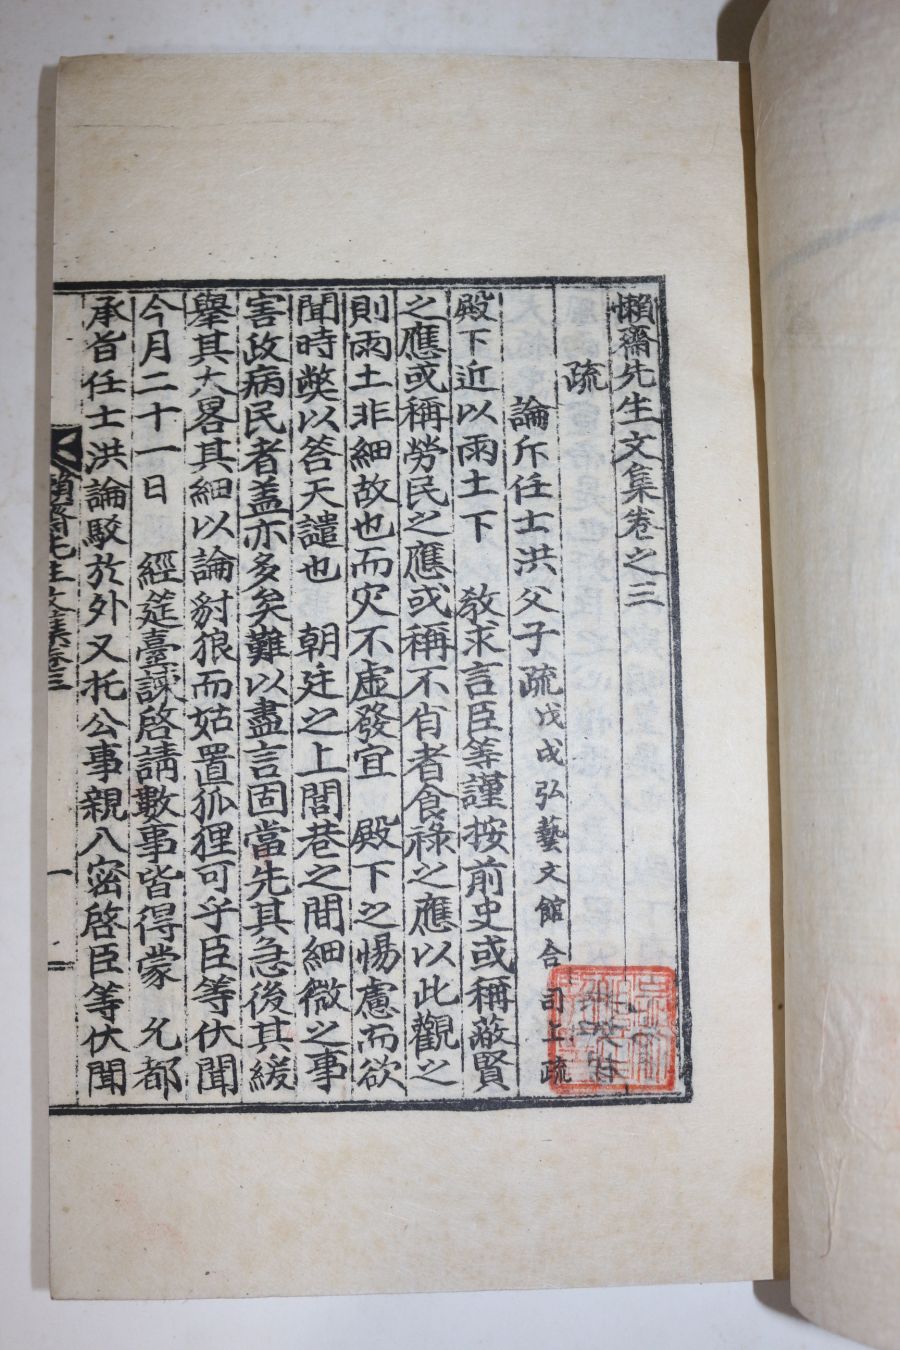 懶齋先生文集卷之三
疏
論斥任士洪父子疏 戊戌弘藝文館合司上疏
殿下近以雨土下 敎求言臣等謹按前史或稱蔽賢
之應或稱勞民之應或稱不肖者食祿之應以此觀之
則雨土非細故也而灾不虛發宜 殿下之惕慮而欲
聞時弊以答天譴也 朝廷之上閭巷之間細微之事
害政病民者盖亦多矣難以盡言固當先其急後其緩
擧其大畧其細以論豺狼而姑置狐狸可乎臣等伏聞
今月二十一日 經筵臺諫啓請數事皆得蒙 允都
承旨任士洪論駁於外又托公事親入密啓臣等伏聞
懶齋先生文集卷三
一